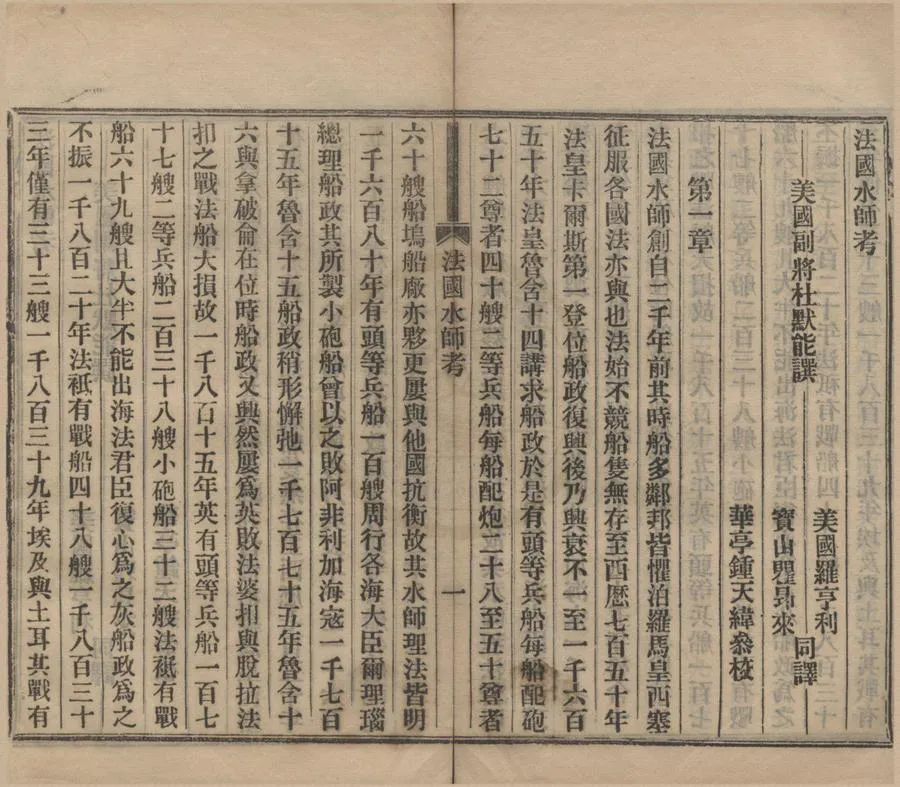 法國水師考
美國副將杜默能譔
美國羅亨利
寶山瞿昂來
同譯
華亭鍾天緯叅校
第一章
法國水師創自二千年前其時船多鄰邦皆懼泊羅馬皇西塞
征服各國法亦與也法始不競船隻無存至西歷七百五十年
法皇卡爾斯第一登位船政復興後乃興衰不一至一千六百
五十年法皇魯含十四講求船政於是有頭等兵船每船配砲
七十二尊者四十艘二等兵船每船配炮二十八至五十尊者
法國水師考
一
六十艘船塢船廠亦夥更屢與他國抗衡故其水師理法皆明
一千六百八十年有頭等兵船一百艘周行各海大臣爾理瑙
總理船政其所製小砲船曾以之敗阿非利加海宼一千七百
十五年魯含十五船政稍形懈弛一千七百七十五年魯含十
六與拿破侖在位時船政又興然屢爲英敗法婆扣與脫拉法
扣之戰法船大損故一千八百十五年英有頭等兵船一百七
十七艘二等兵船二百三十八艘小砲船三十二艘法祗有戰
船六十九艘且大半不能出海法君臣復心爲之灰船政爲之
不振一千八百二十年法祗有戰船四十八艘一千八百三十
三年僅有三十三艘一千八百三十九年埃及與土耳其戰有